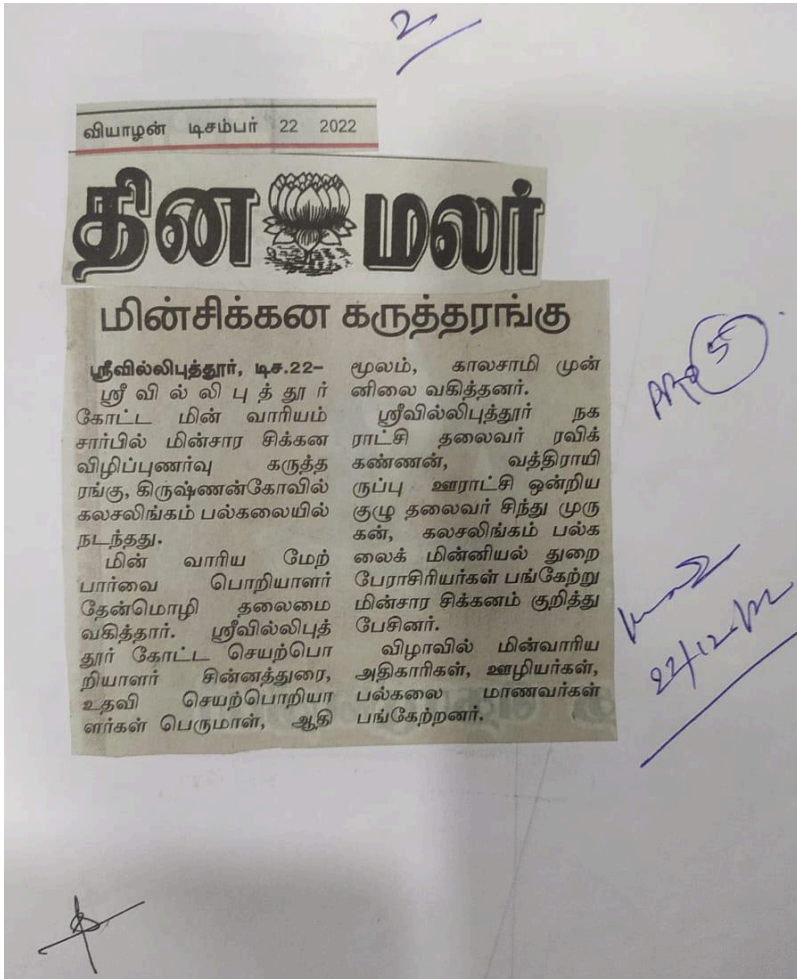 2
வியாழன் டிசம்பர் 22 2022
தின மலர்
மின்சிக்கன கருத்தரங்கு
ஸ்ரீவில்லிபுத்தூர், டிச.22–
ஸ்ரீவில்லிபுத்தூர்
கோட்ட மின் வாரியம்
சார்பில் மின்சார சிக்கன
விழிப்புணர்வு கருத்த
ரங்கு, கிருஷ்ணன்கோவில்
கலசலிங்கம் பல்கலையில்
நடந்தது.
மின் வாரிய மேற்
பார்வை பொறியாளர்
தேன்மொழி தலைமை
வகித்தார். ஸ்ரீவில்லிபுத்
தூர் கோட்ட செயற்பொ
றியாளர் சின்னத்துரை,
உதவி செயற்பொறியா
ளர்கள் பெருமாள், ஆதி
மூலம், காலசாமி முன்
னிலை வகித்தனர்.
ஸ்ரீவில்லிபுத்தூர் நக
ராட்சி தலைவர் ரவிக்
கண்ணன், வத்திராயி
ருப்பு ஊராட்சி ஒன்றிய
குழு தலைவர் சிந்து முரு
கன், கலசலிங்கம் பல்க
லைக் மின்னியல் துறை
பேராசிரியர்கள் பங்கேற்று
மின்சார சிக்கனம் குறித்து
பேசினர்.
விழாவில் மின்வாரிய
அதிகாரிகள், ஊழியர்கள்,
பல்கலை மாணவர்கள்
பங்கேற்றனர்.
5
22/12/22